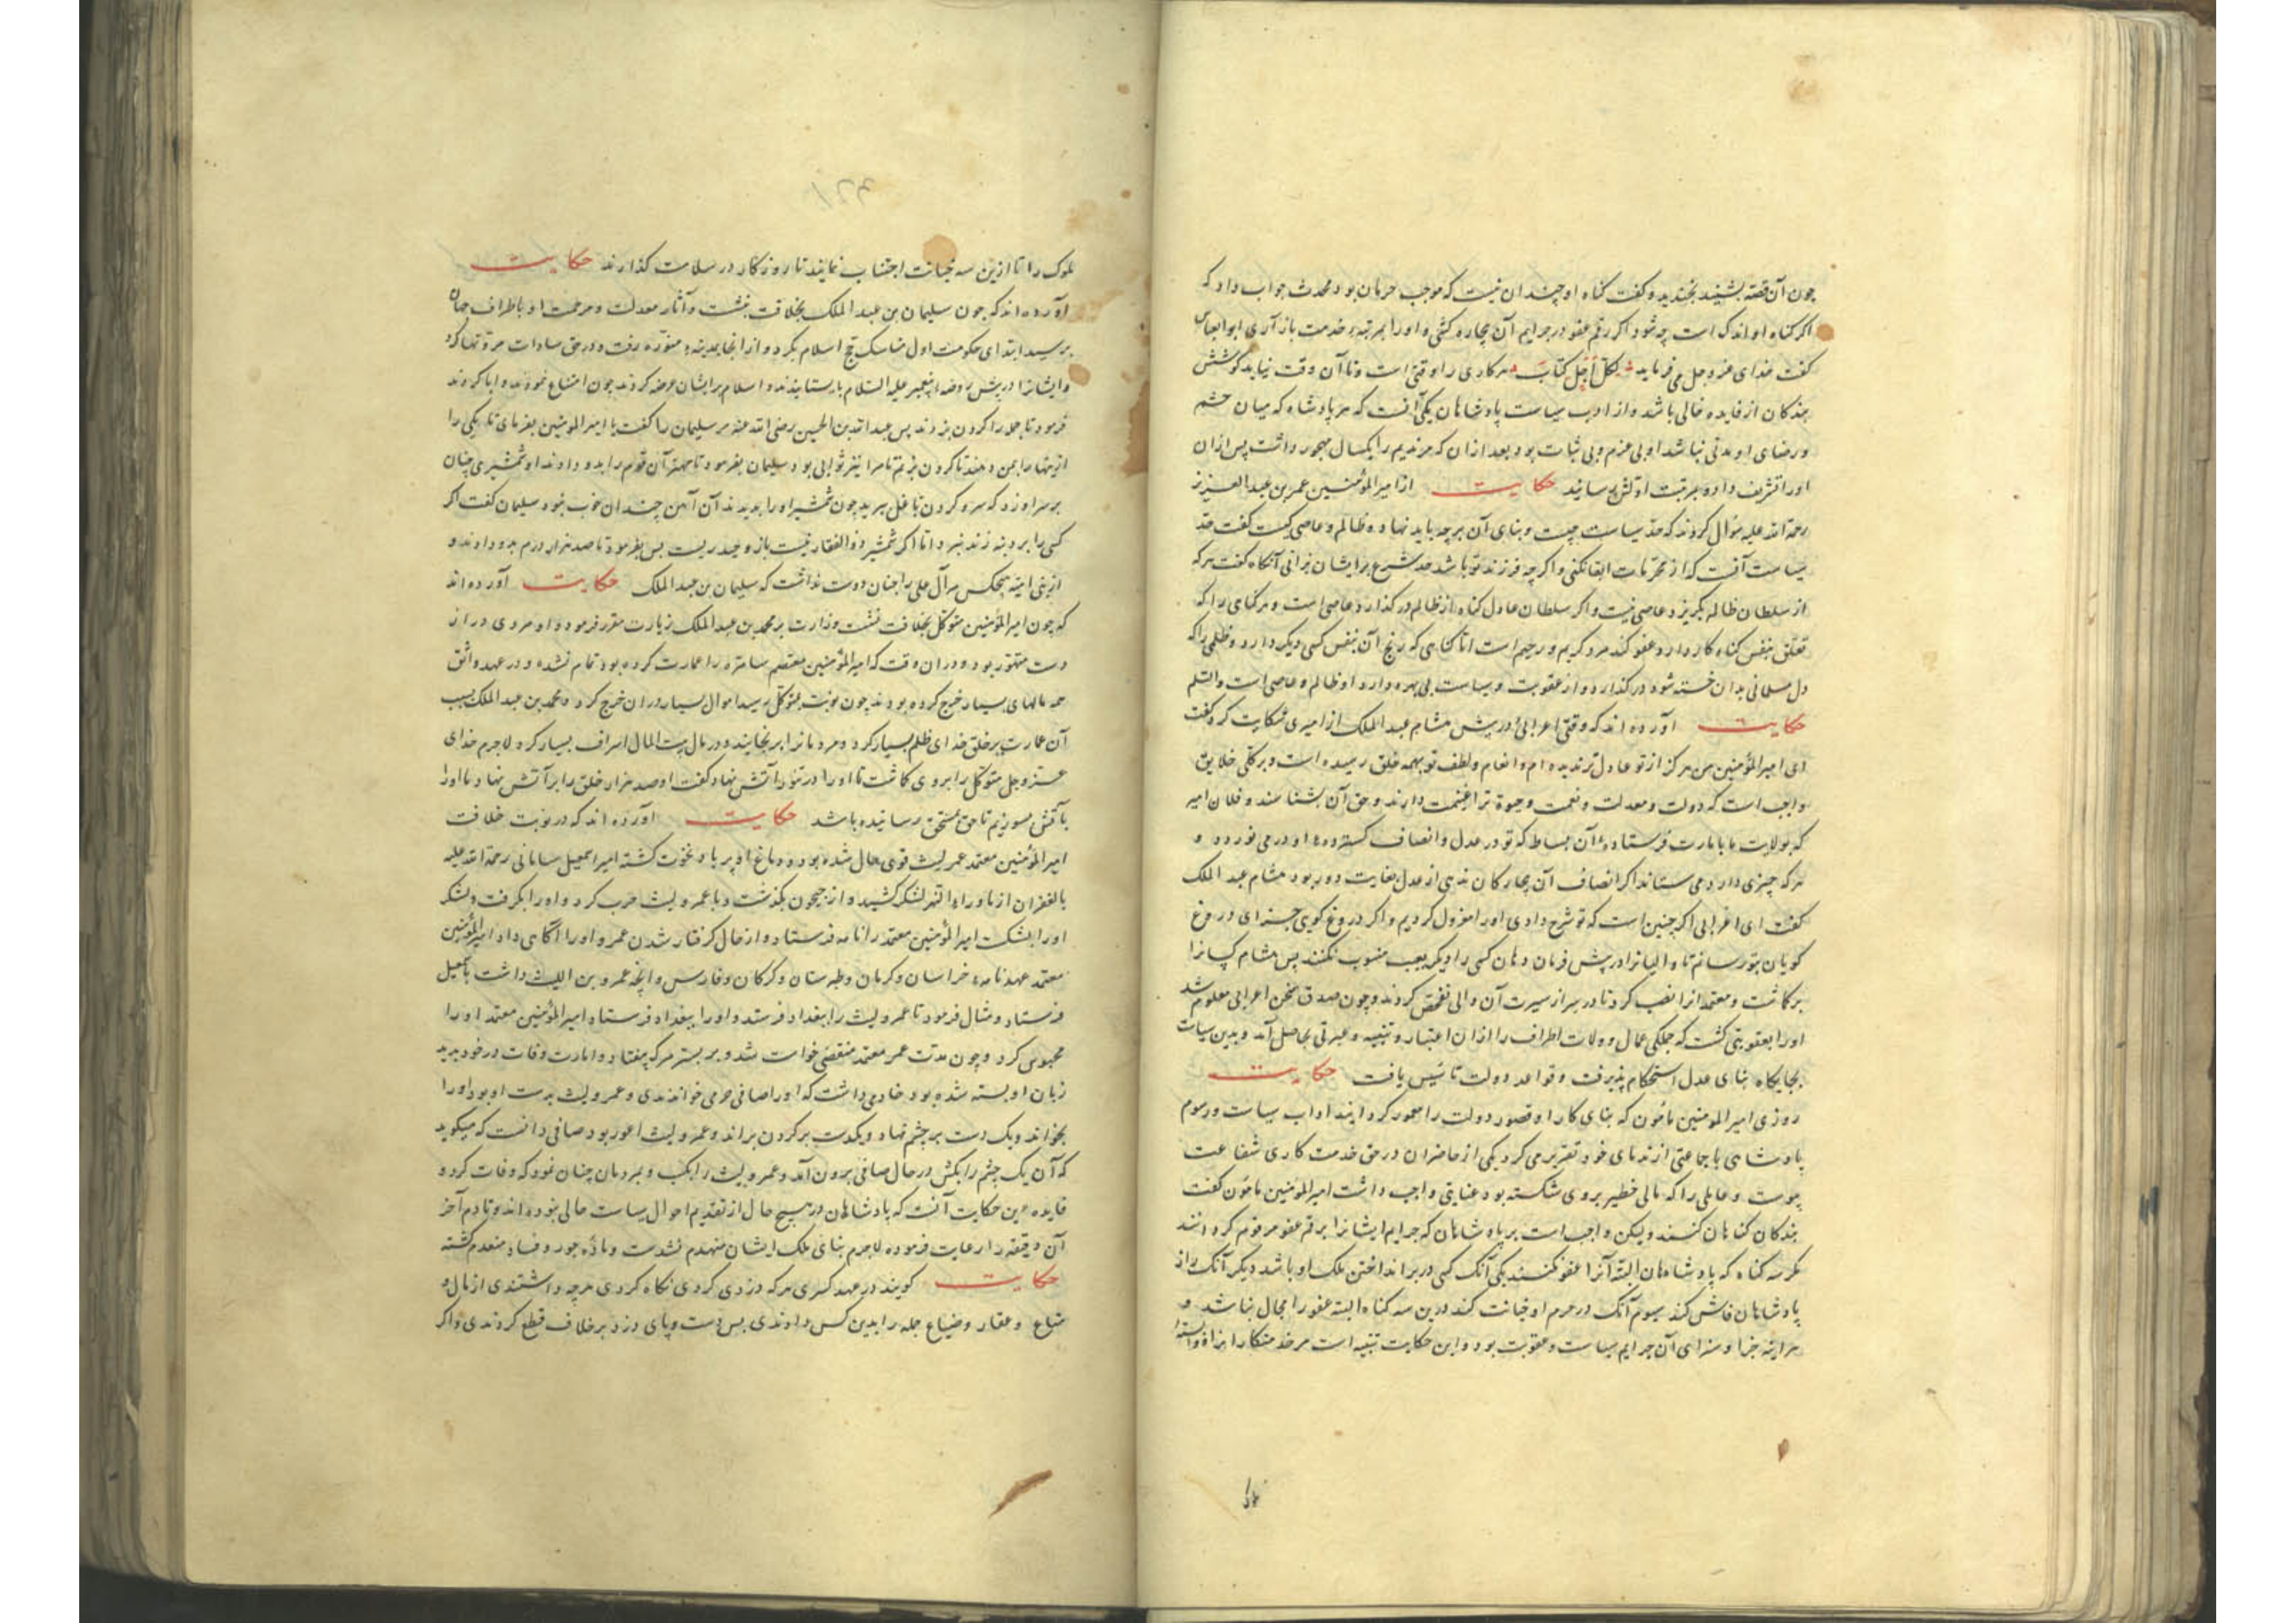 چون آن قصه بشنید بخندید و کفت کناه او چندان نیست که موجب حرمان بود محدث جواب داد که
اکر کناه او اندک است چه شود اکر رقم عفو در جرایم آن بیچاره کشی و او را بمرتبه خدمت باز آری ابوالعباس
کفت خدای عزوجل می فرماید لکل اجل کتاب هر کاری را وقتی است و تا آن وقت نیاید کوشش
بندکان از فایده خالی باشد و از ادب سیاست پادشاهان یکی آنست که هر پادشاه که میان خشم
و رضای او مدتی نباشد او بی عزم و بی ثبات بود بعد ازان که مر ندیم را یکسال مهجور داشت پس ازان
او را تشریف داد و بمرتبت اولش رسانید حکایت از امیر المؤمنین عمر بن عبد العزیز
رحمة الله علیه سؤال کردند که حد سیاست چیست و بنای آن بر چه باید نهاد و ظالم و عاصی کیست کفت حد
سیاست آنست که از محرمات ابقا نکنی و اکر چه فرزند تو باشد حد شرع بر ایشان برانی آنکاه کفت هر که
از سلطان ظالم بکریزد عاصی نیست و اکر سلطان عادل کناه از ظالم در کذارد عاصی است و هر کناهی را که
تعلق بنفس کناه کار دارد عفو کند مرد کریم و رحیم است اما کناهی که رنج آن بنفس کسی دیکر دارد و ظلمی را که
دل مسلمانی بدان خسته شود در کذارد و از عقوبت و سیاست بی بهره دارد او ظالم و عاصی است والسلم
حکایت آورده اند که وقتی اعرابی در پیش هشام عبد الملک از امیری شکایت کرد و کفت
ای امیر المؤمنین من هرکز از تو عادل تر ندیده ام و انعام و لطف تو بهمه خلق رسیده است و بر کلی خلایق
واجب است که دولت و معدلت و نعمت وجود ترا غنیمت دارند و حق آن بشناسند و فلان امیر
که بولایت ما بامارت فرستاده آن بساط که تو در عدل و انصاف کسترده او در می نوردد و
هر که چیزی دارد می ستاند اکر انصاف آن بیچارکان ندهی از عدل بغایت دور بود هشام عبد الملک
کفت ای اعرابی اکر چنین است که تو شرح دادی او را معزول کردیم و اکر دروغ کویی جزای دروغ
کویان بتو رسانم تا والیان را در پیش فرمان دهان کسی را دیکر بعیب منسوب نکنند پس هشام کسانرا
برکاشت و معتمدانرا نصب کرد تا در سر از سیرت آن والی تفحص کردند و چون صدق سخن اعرابی معلوم شد
او را بعقوبتی کشت که جملکی عمال و ولات اطراف را ازان اعتبار و تنبیه و عبرتی حاصل آمد و بدین سیاست
بجایکاه بنای عدل استحکام پذیرفت و قواعد دولت تاسیس یافت حکایت
روزی امیر المومنین مامون که بنای کار او قصور دولت را معمور کردانید آداب سیاست و رسوم
پادشاهی با جماعتی از ندمای خود تقریر می کرد یکی از حاضران در حق خدمت کاری شفاعت
پیوست و عاملی را که مالی خطیر بر وی شکسته بود عنایتی واجب داشت امیر المومنین مامون کفت
بندکان کناهان کنند ولیکن واجب است بر پادشاهان که جرایم ایشانرا برقم عفو مرقوم کردانند
مکر سه کناه که پادشاهان البته آنرا عفو نکنند یکی آنک کسی در بر انداختن ملک او باشد دیکر آنک راز
پادشاهان فاش کند سیوم آنک در حرم او خیانت کند درین سه کناه البته عفو را مجال نباشد و
هر آینه جزا و سزای آن جرایم سیاست و عقوبت بود و این حکایت تنبیه است مر خدمتکاران
ملوک را تا ازین سه خیانت اجتناب نمایند تا روزکار در سلامت کذارند حکایت
آورده اند که چون سلیمان بن عبد الملک بخلافت بنشست و آثار معدلت و مرحمت او باطراف جهان
برسید ابتدای حکومت اول مناسک حج اسلام بکرد و از آنجا بمدینه منوره رفت و در حق سادات مروتها کرد
و ایشانرا در پیش روضه پیغمبر علیه السلام بایستانیدند و اسلام بر ایشان عرضه کردند چون امتناع نمودند و ابا کردند
فرمود تا جمله را کردن بزدند پس عبد الله بن الحسین رضی الله عنه مر سلیمان را کفت یا امیر المومنین بفرمای تا یکی را
ازینها را بمن دهند تا کردن بزنم تا مرا نیز ثوابی بود سلیمان بفرمود تا مهتر آن قوم را بدو دادند او شمشیری چنان
بر سر او زد که سر و کردن تا بغل ببرید چون شمشیر او را بدیدند آن آهن چندان خوب نبود سلیمان کفت اکر
کسی را بر دینه زند نبرد اما اکر شمشیر ذوالفقار نیست بازو حیدریست پس بفرمود تا صد هزار درم بدو دادند و
از بنی امیه هیچکس مر آل علی را چنان دوست نداشت که سلیمان بن عبد الملک حکایت آورده اند
که چون امیر المؤمنین متوکل بخلافت بنشست وزارت بر محمد بن عبد الملک زیات مقرر فرمود و او مردی دراز
دست متهور بود و دران وقت که امیر المؤمنین معتصم سامره را عمارت کرده بود تمام نشده و در عهد واثق
هم مالهای بسیار خرج کرده بودند چون نوبت بمتوکل رسید اموال بسیار دران خرج کرد و محمد بن عبد الملک بسبب
آن عمارت بر خلق خدای ظلم بسیار کرد و مردمانرا برنجانید و در مال بیت المال اسراف بسیار کرد لاجرم خدای
عز و جل متوکل را بر وی کماشت تا او را در تنور آتش نهاد و کفت او صد هزار خلق را بر آتش نهاد ما او را
بآتش بسوزیم تا حق بمستحق رسانیده باشد حکایت آورده اند که در نوبت خلافت
امیر المؤمنین معتمد عمر لیث قوی حال شده بود و دماغ او پر باد نخوت کشته امیر اسمعیل سامانی رحمة الله علیه
بالغفران از ماوراء النهر لشکر کشید و از جیحون بکذشت و با عمرو لیث حرب کرد و او را بکرفت و لشکر
او را بشکست امیر المؤمنین معتمد را نامه فرستاد و از حال کرفتار شدن عمرو او را آکاهی داد امیر المؤمنین
معتمد عهدنامه خراسان و کرمان و طبرستان و کرکان و فارس و آنچه عمرو بن اللیث داشت باسمعیل
فرستاد و مثال فرمود تا عمرو لیث را ببغداد فرستد و او را ببغداد فرستاد امیر المؤمنین معتمد او را
محبوس کرد و چون مدت عمر معتمد منقضی خواست شد و بر بستر مرک بیفتاد و امارت وفات در خود بدید
زبان او بسته شده بود خادمی داشت که او را صافی حرمی خواندندی و عمرو لیث بدست او بود او را
بخواند و یک دست بر چشم نهاد و یکدست بر کردن براند و عمرو لیث اعور بود صافی دانست که میکوید
که آن یک چشم را بکش در حال صافی برون آمد و عمرو لیث را بکشت و بمردمان چنان نمود که وفات کرد و
فایده این حکایت آنست که پادشاهان در هیچ حال از تقدیم احوال سیاست خالی نبوده اند و تا دم آخر
آن دقیقه را رعایت فرموده لاجرم بنای ملک ایشان منهدم نشدست و ماده جور و فساد منعدم کشته
حکایت کویند در عهد کسری هر که دزدی کردی نکاه کردی هر چه داشتندی از مال و
متاع و عقار و ضیاع جمله را بدین کس دادندی پس دست و پای دزد بر خلاف قطع کردندی و اکر